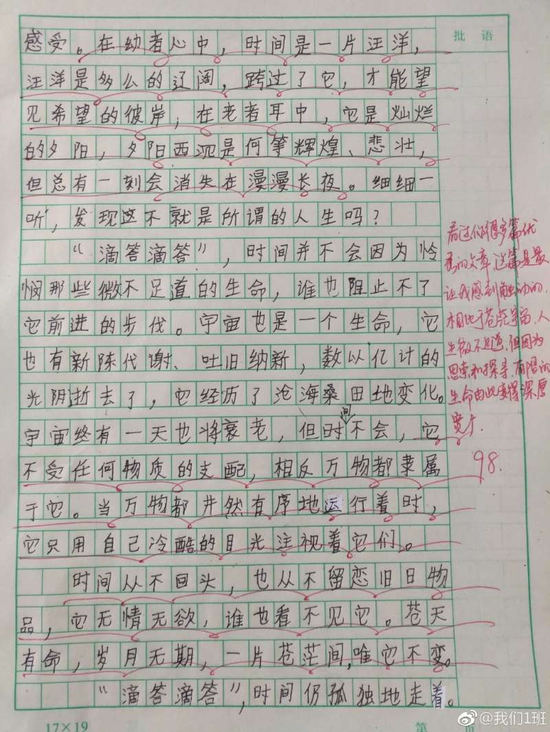 批 语
感受。在幼者心中，时间是一片汪洋，
汪洋是多么的辽阔，跨过了它，才能望
见希望的彼岸，在老者耳中，它是灿烂
的夕阳，夕阳西沉是何等辉煌、悲壮，
但总有一刻会消失在漫漫长夜。细细一
听，发现这不就是所谓的人生吗？
“滴答滴答”，时间并不会因为怜
悯那些微不足道的生命，谁也阻止不了
它前进的步伐。宇宙也是一个生命，它
也有新陈代谢、吐旧纳新，数以亿计的
光阴逝去了，它经历了沧海桑田地变化。
宇宙终有一天也将衰老，但时间不会，它
不受任何物质的支配，相反万物都隶属
于它。当万物都井然有序地运行着时，
它只用自己冷酷的目光注视着它们。
时间从不回头，也从不留恋旧日物
品，它无情无欲，谁也看不见它。苍天
有命，岁月无期，一片苍茫间，唯它不变。
“滴答滴答”，时间仍孤独地走着。
看过你很多篇优
秀的文章，这篇是最
让我感到触动的，
人
生微不足道，但因为
思索和探寻，有限的
生命由此变得深厚
宽广
98.
17×19
第 页
@我们1班